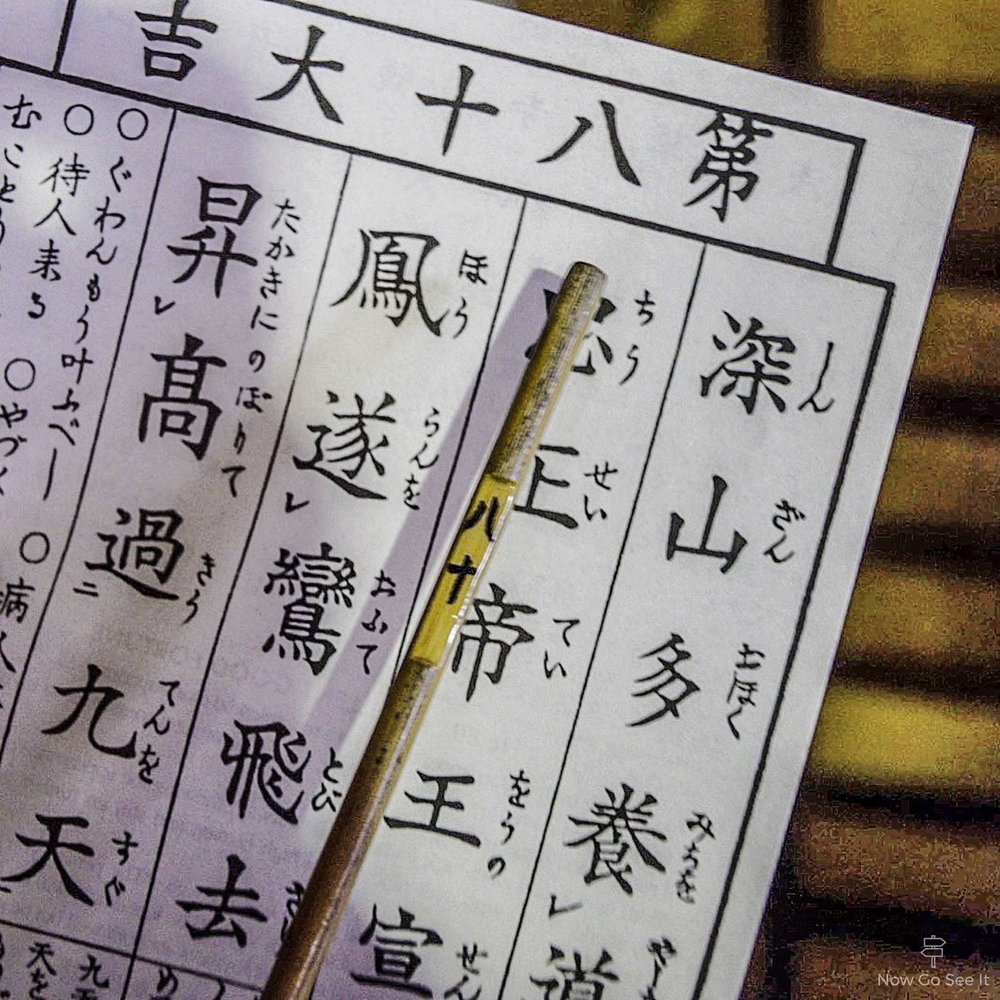 第八十大吉
しんざんおほくみちをやし
深山多養レ道
ちうせいていをうのせん
忠正帝王宣
ほうらんをおふてとび
鳳遂レ鸞飛去
たかきにのぼりてきうてんをすぐ
昇レ髙過二九天
○ぐわんもう叶ふべし ○病人
○待人来る ○やづく
むことり
八十
Now Go See It